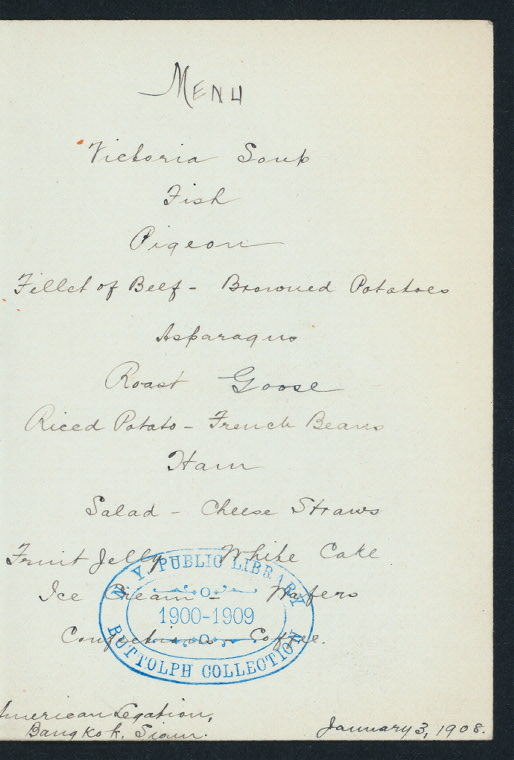 MENU
Victoria Soup
Fish
Pigeon
Fillet of Beef - Browned Potatoes
Asparagus
Roast Goose
Riced Potato - French Beans
Ham
Salad - Cheese Straws
Fruit Jelly - White Cake
Ice Cream - Wafers
Confections - Coffee.
N Y PUBLIC LIBRARY
1900-1909
BUTTOLPH COLLECTION
American Legation,
Bangkok, Siam.
January 3, 1908.